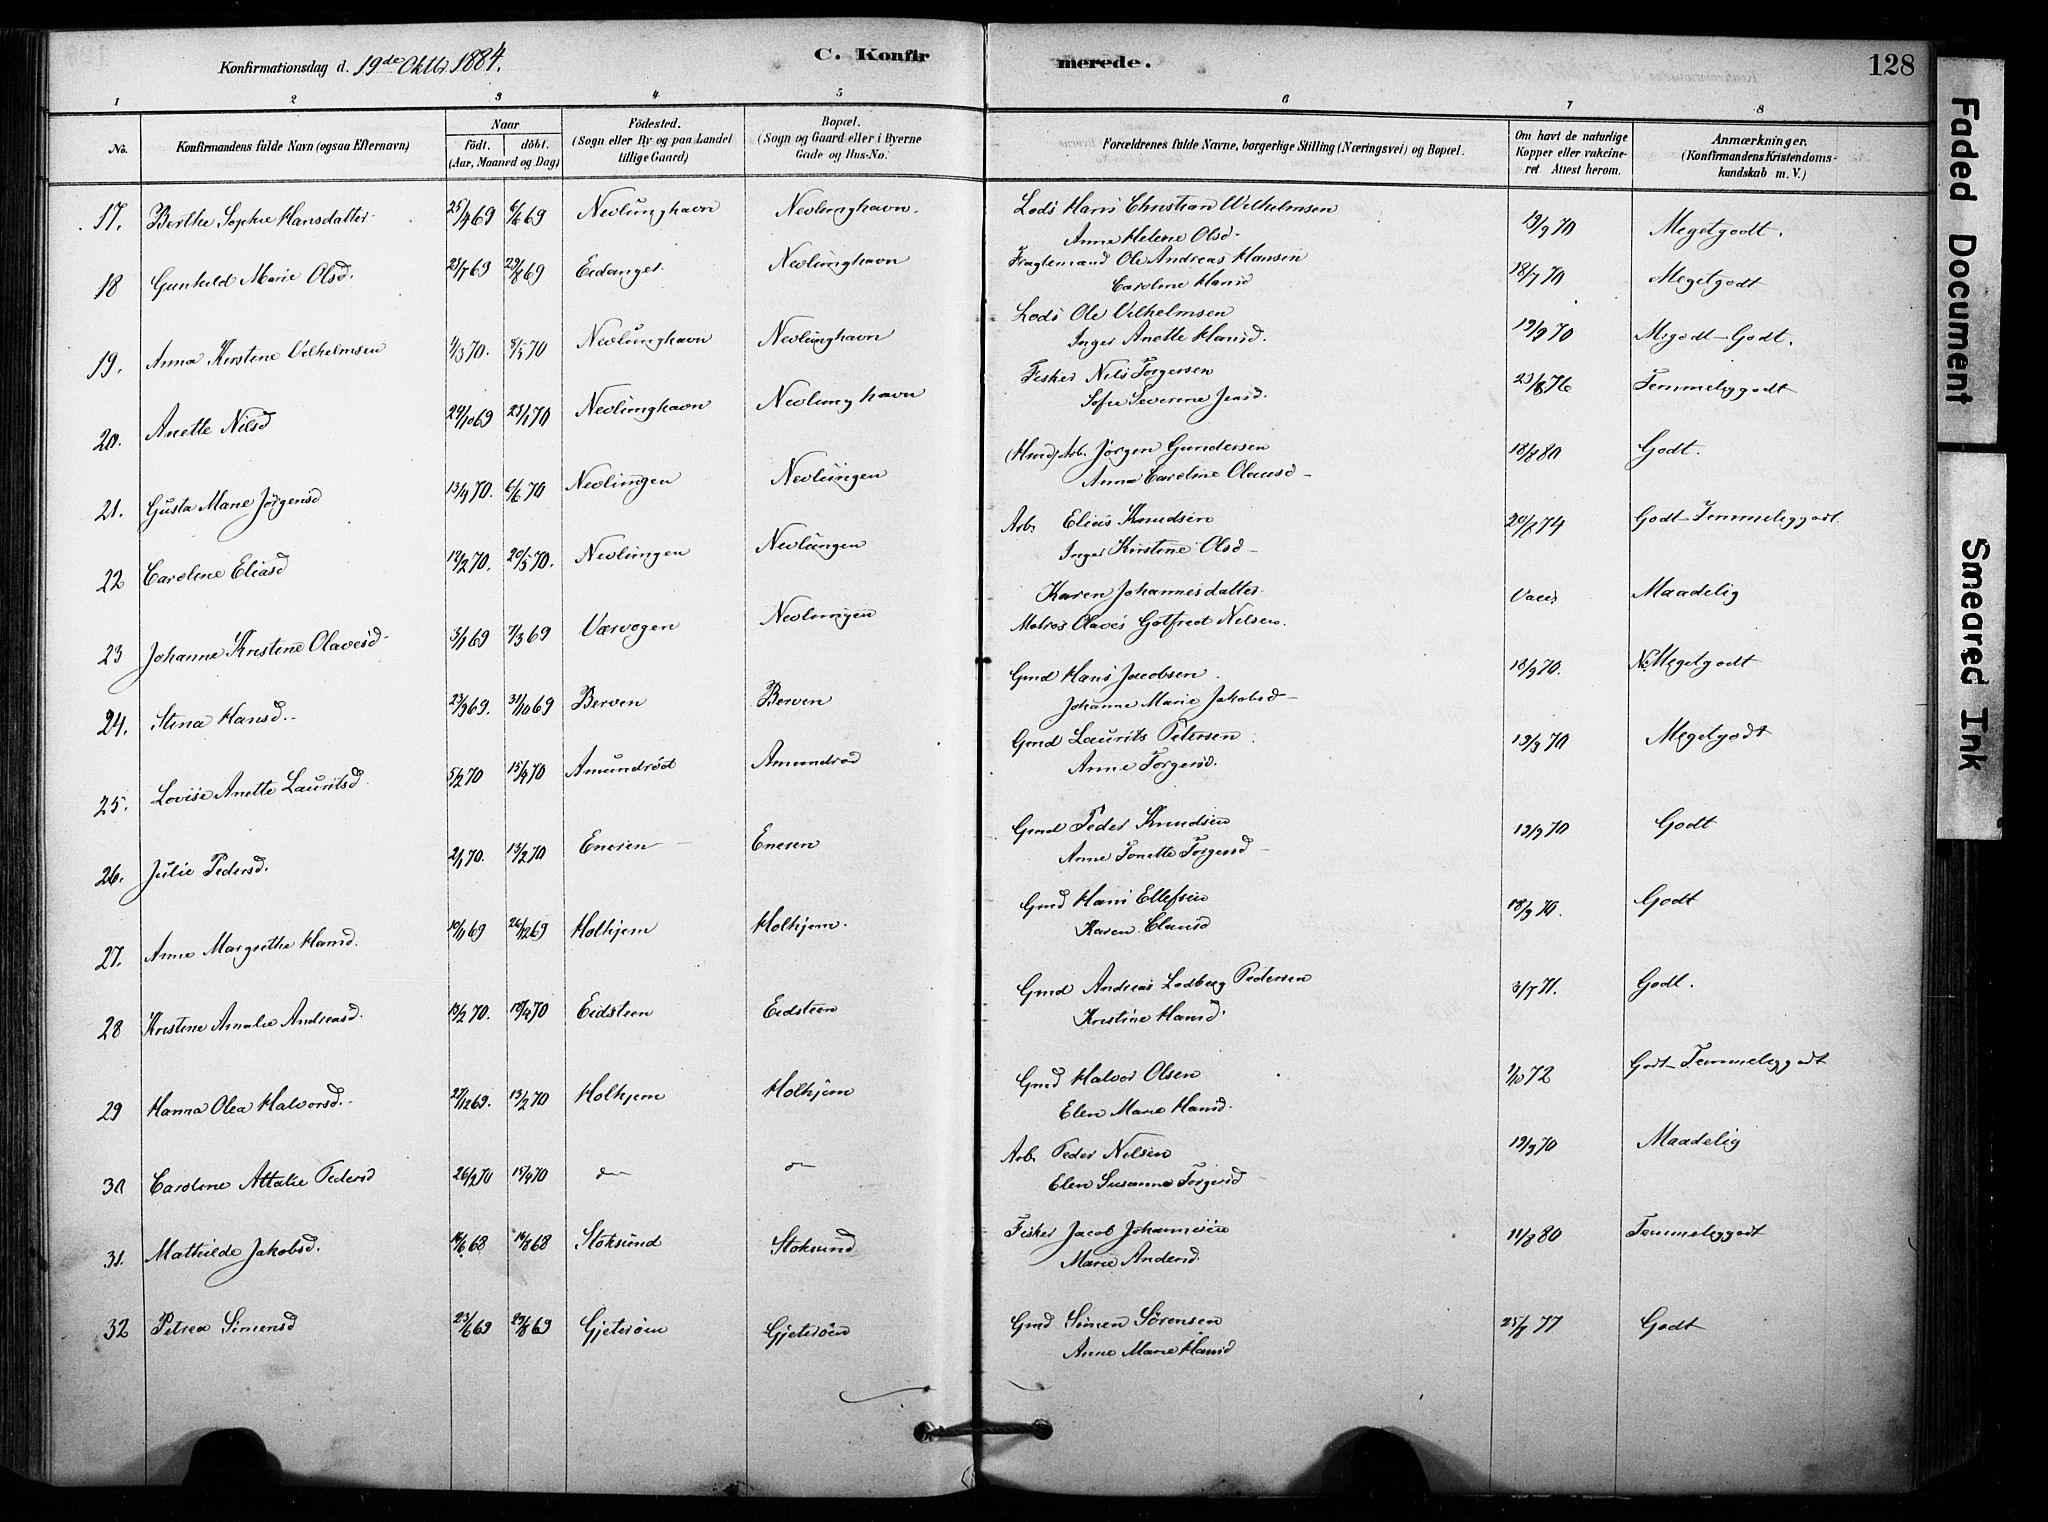 Konfirmationsdag d. 19de Oktbr 1884.
C. Konfirmerede.
128
1 2 3 4 5 6 7 8
No. Konfirmandens fulde Navn (ogsaa Efternavn) Naar Födt. döbt. (Aar, Maaned og Dag) Födested. (Sogn eller By og paa Landet tillige Gaard) Bopæl. (Sogn og Gaard eller i Byerne Gade og Hus-No.) Forældrenes fulde Navne, borgerlige Stilling (Næringsvei) og Bopæl. Om havt de naturlige Kopper eller vakcineret. Attest herom. Anmærkninger. (Konfirmandens Kristendomskundskab m. V.)
17. Berthe Sophie Hansdatter 25/4 69 6/6 69 Nevlunghavn Nevlunghavn. Lods Hans Christian Vilhelmsen 19/9 70 Megetgodt.
Anne Helene Olsd.
18 Gunhild Marie Olsd. 29/8 69 Eidanger Nevlunghavn Fragtemand Ole Andreas Hansen 18/7 70 Megetgodt
Caroline Hansd
19. Anna Kirstine Vilhelmsen 8/5 70 Nevlunghavn Nevlunghavn Lods Ole Vilhelmsen 19/9 70 Megodt-Godt.
Inger Anette Hansd.
20. Anette Nilsd 24/10 69 23/1 70 Nevlunghavn Nevlunghavn Fisker Nils Torgersen 23/8 76 Temmeliggodt
Sofie Severine Jensd.
21. Gusta Marie Jørgensd 13/4 70. 6/6 70 Nevlungen Nevlungen (Hmd) Arb. Jørgen Gundersen 18/8 80 Godt.
Anna Caroline Olausd
22 Caroline Eliasd 12/2 70. 20/5 70. Nevlungen Nevlungen Arb. Elias Knudsen 20/8 74 Godt-Temmeliggodt
Inger Kirstine Olsd
23 Johanne Kristine Olavesd. 3/1 69 7/3 69 Værvagen Nevlungen Karen Johannesdatter Vacc. Maadelig
Matros Olaves Gotfred Nilsen.
24. Stina Hansd. 23/9 69. 31/10 69 Berven Berven Gmd Hans Jacobsen 18/9 70. Megetgodt
Johanne Marie Jakobsd
25. Lovise Anette Lauritsd 5/2 70 15/4 70 Amundrød Amundrød Gmd Laurits Petersen 19/9 70 Megetgodt
Anne Torgersd.
26. Julie Pedersd. 2/1 70. 13/2 70 Enesen Enesen Gmd Peder Knudsen 19/9 70 Godt
Anne Tonette Torgersd
27. Anne Margrethe Hansd. 10/11 69 26/12 69 Holhjem Holhjem. Gmd Hans Ellefsen 18/9 70. Godt
Karen Clausd
28 Kristine Amalie Andreasd. 13/2 70. 18/4 70 Eidsteen Eidsteen Gmd Andreas Lodberg Pedersen 3/7 71. Godt.
Kristine Hansd.
29 Hanna Olea Halvorsd. 27/12 69. 13/2 70 Holhjem Holhjem Gmd Halvor Olsen 72 Godt-Temmeliggodt
Elen Marie Hansd.
30 Caroline Attalie Pedersd 26/2 70 15/4 70 Arb. Peder Nilsen 19/9 70 Maadelig
Elen Susanne Torgersd
31. Mathilde Jakobsd. 16/6 68 16/8 68 Stoksund Stoksund Fisker Jacob Johannesen 11/8 80 Temmeliggodt
Marie Andersd.
32 Petrea Simensd 23/6 69 29/8 69 Gjeterøen Gjeterøen Gmd Simen Sørensen 25/8 77 Godt
Anne Marie Hansd
Faded Document
Smeared Ink